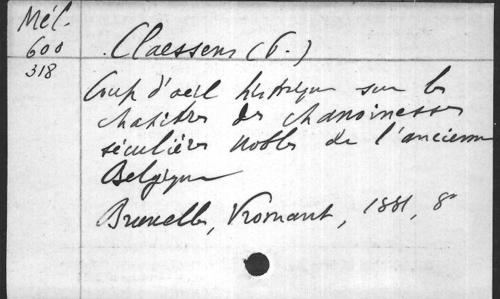 Mél.
600
318
Claessens (P.)
Coup d'oeil historique sur les
chapitres de chanoinesses
séculières nobles de l'ancienne
Belgique
Bruxelles, Vromant, 1881, 8°